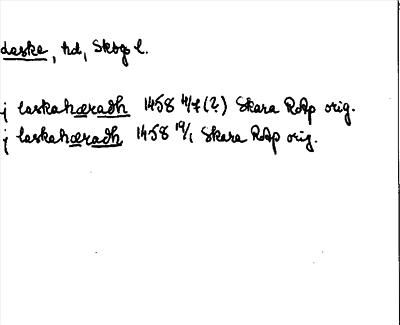 Laske, hd, Skbg l.
j laskahæradh 1458 4/7 (?) Skara RAp orig.
j laskahæradh, 1458 19/1 Skara RAp orig.